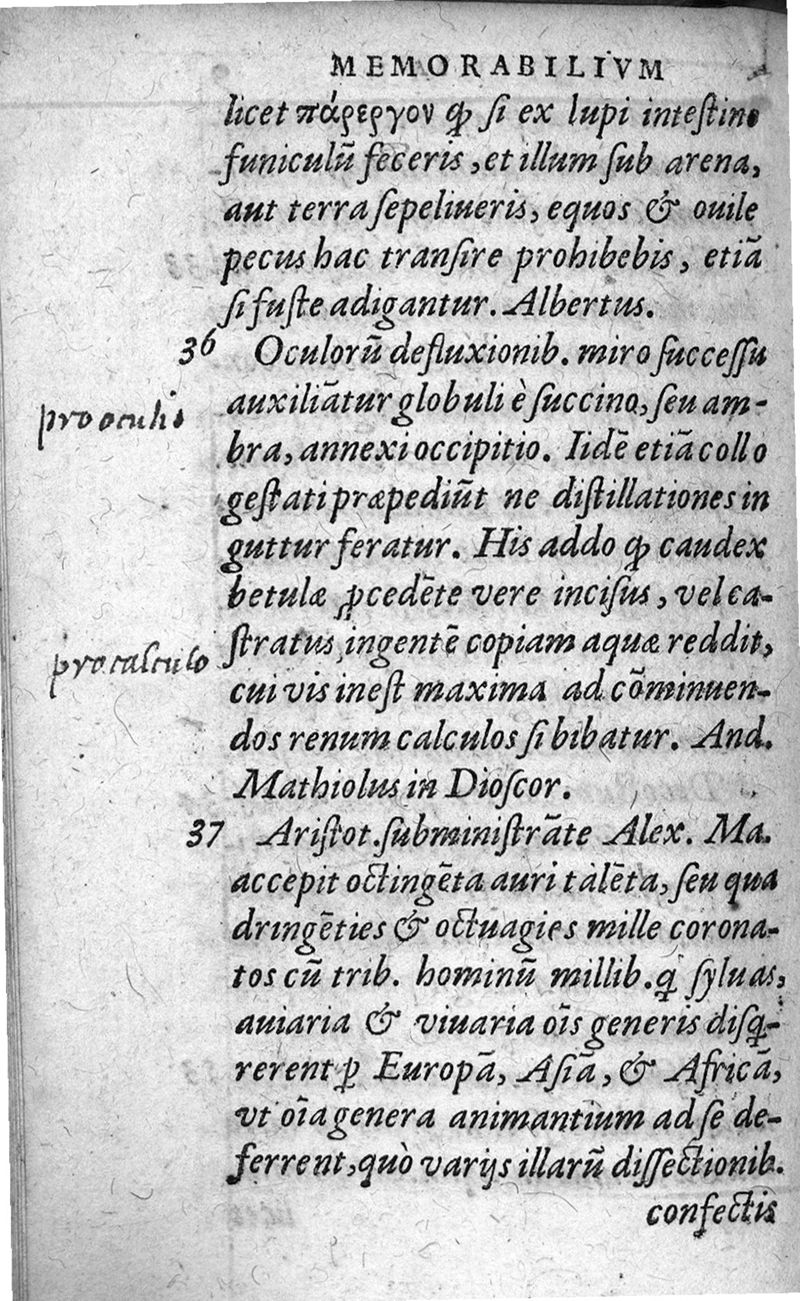 MEMORABILIVM
licet πάρεργον ꝙ ſi ex lupi inteſtino
funiculũ feceris, et illum ſub arena,
aut terra ſepeliueris, equos & ouile
pecus hac tranſire prohibebis, etiã
ſi fuſte adigantur. Albertus.
36 Oculorũ defluxionib. miro ſucceſſu
pro oculis
auxiliãtur globuli è ſuccino, ſeu am-
bra, annexi occipitio. Iidẽ etiã collo
geſtati præpediũt ne diſtillationes in
guttur feratur. His addo ꝙ caudex
betulæ ꝓcedẽte vere inciſus, vel ca-
pro calculo
ſtratus ingentẽ copiam aquæ reddit,
cui vis ineſt maxima ad cõminuen-
dos renum calculos ſi bibatur. And.
Mathiolus in Dioſcor.
37 Ariſtot. ſubminiſtrãte Alex. Ma.
accepit octingẽta auri talẽta, ſeu qua
dringẽties & octuagies mille corona-
tos cũ trib. hominũ millib. ꝗ ſyluas,
auiaria & viuaria oĩs generis diſꝗ-
rerent ꝑ Europã, Aſiã, & Africã,
vt oĩa genera animantium ad ſe de-
ferrent, quò varijs illarũ diſſectionib.
confectis